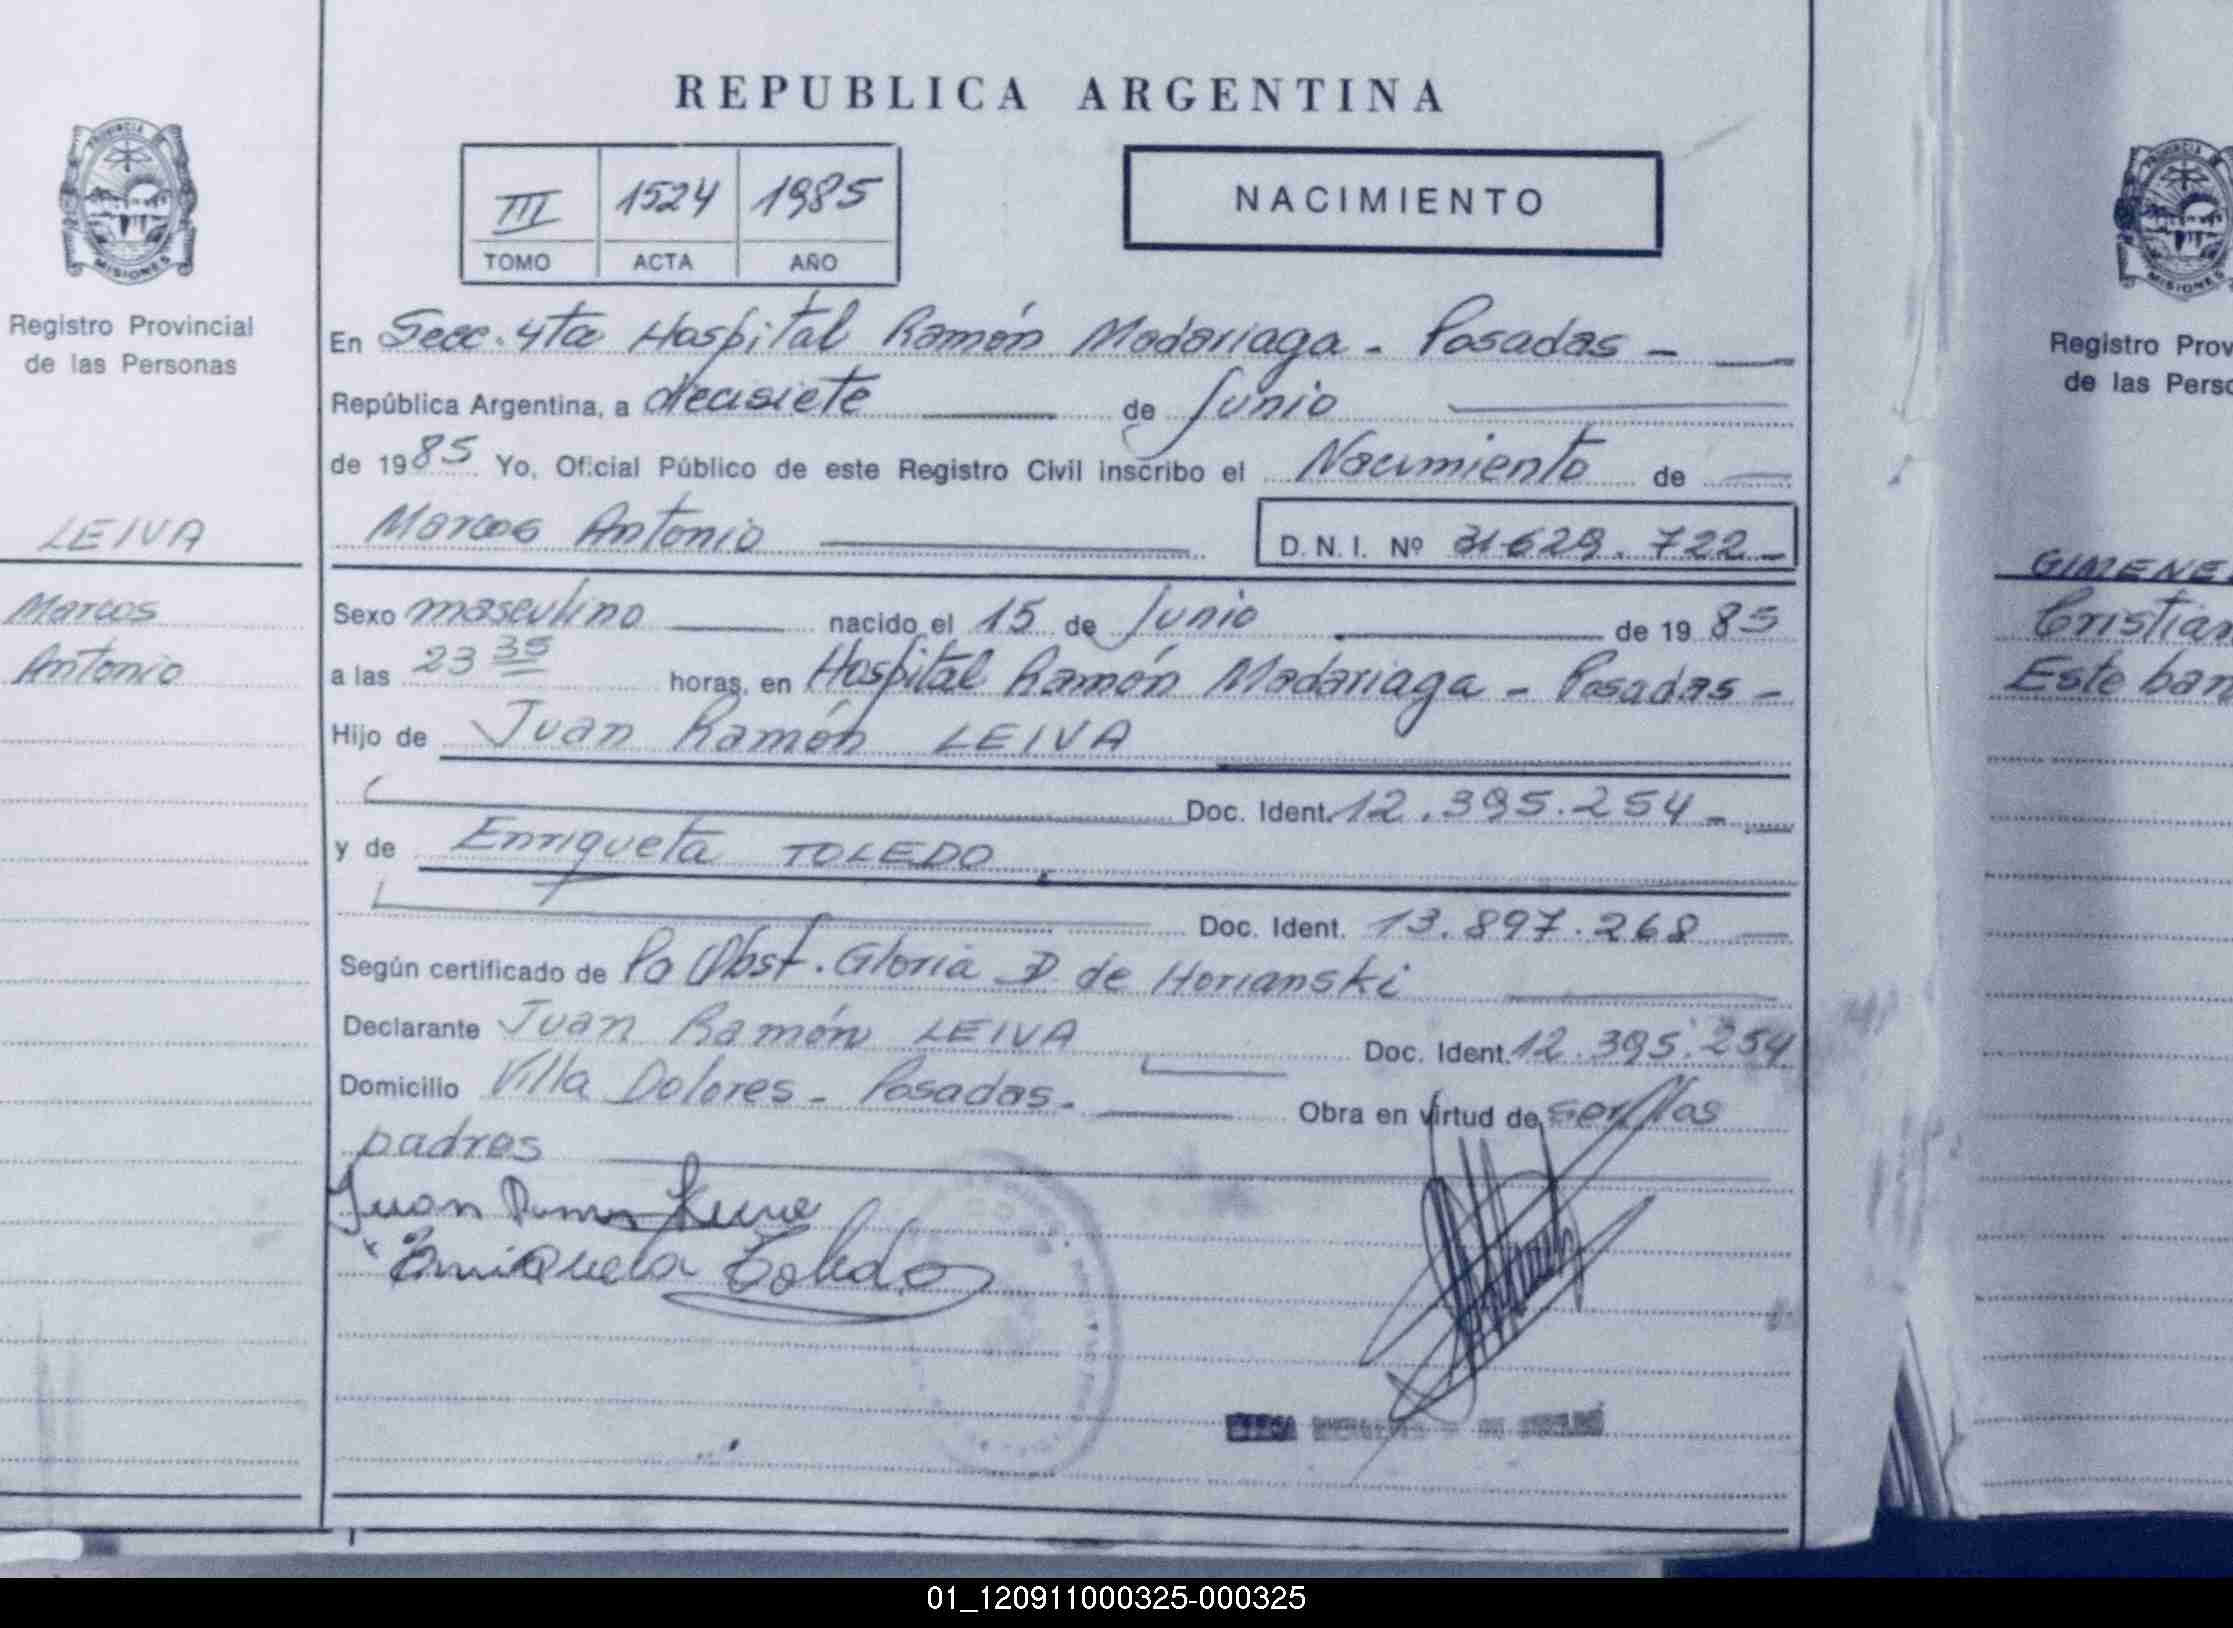 REPUBLICA ARGENTINA
III 1524 1985
TOMO ACTA AÑO
NACIMIENTO
PROVINCIA
MISIONES
Registro Provincial
de las Personas
LEIVA
Marcos
Antonio
En Secc. 4ta Hospital Ramón Madariaga - Posadas -
República Argentina, a diecisiete de Junio
de 1985 Yo, Oficial Público de este Registro Civil inscribo el Nacimiento de
Marcos Antonio D.N.I. Nº 31629.722-
Sexo masculino nacido el 15 de Junio de 1985
a las 23 35 horas, en Hospital Ramón Madariaga - Posadas -
Hijo de Juan Ramón LEIVA
Doc. Ident. 12.395.254-
y de Enriqueta TOLEDO
Doc. Ident. 13.897.268
Según certificado de Pa Obst. Gloria D de Horianski
Declarante Juan Ramón LEIVA Doc. Ident. 12.395.254
Domicilio Villa Dolores - Posadas - Obra en virtud de ser los
padres
Juan Ramon Leiva
Enriqueta Toledo
PROVINCIA DE
MISIONES
Registro Prov
de las Perso
GIMENE
Cristian
Este ban
01_120911000325-000325